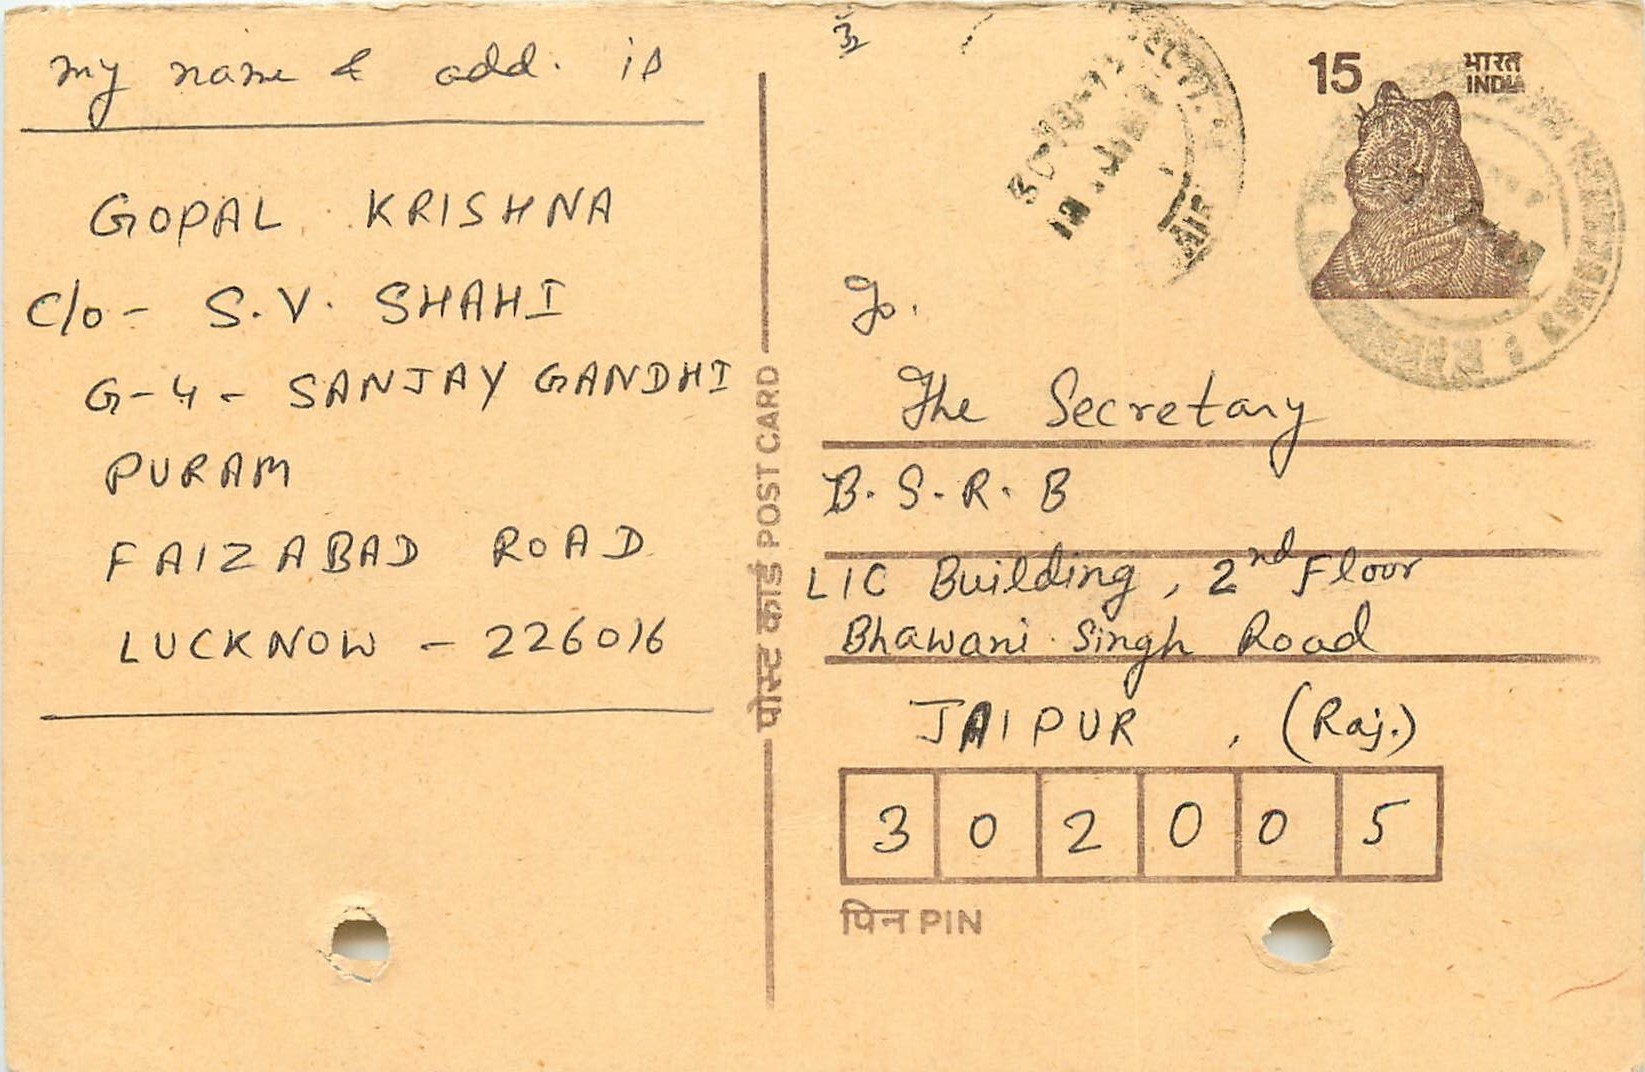 my name & add. is
GOPAL KRISHNA
C/o - S.V. SHAHI
G-4 - SANJAY GANDHI
PURAM
FAIZABAD ROAD
LUCKNOW - 226016
पोस्ट कार्ड POST CARD
15
भारत
INDIA
To.
The Secretary
B. S. R. B
LIC Building, 2nd Floor
Bhawani Singh Road
JAIPUR, (Raj.)
302005
पिन PIN